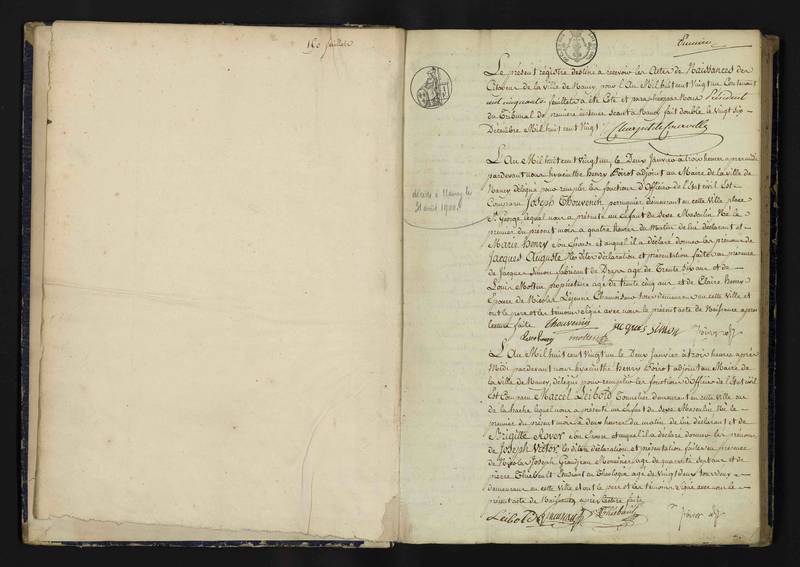 150 feuillets
Premier
Le présent registre destiné à recevoir les Actes de Naissances des
Citoyens de la ville de Nancy, pour l'An Mil huit cent vingt un Contenant
cent cinquante feuillets a été Coté et paraphé par Nous Président
du Tribunal de première instance séant à Nancy fait double le Vingt six
Décembre Mil huit cent Vingt
L'An Mil huit cent Vingt un, le Deux Janvier à trois heures après midi
pardevant nous hyacinthe henry Poirot adjoint au Maire de la Ville de
Nancy délégué pour remplir les fonctions d'Officier de l'Etat civil Est
Comparu Joseph Thouvenin perruquier demeurant en cette Ville, place
St George, lequel nous a présenté un Enfant du Sexe Masculin Né le
premier du présent mois à quatre heures du Matin de lui déclarant et
Marie henry son épouse et auquel il a déclaré donner les prénoms de
Jacques Auguste les dites déclaration et présentation faites en présence
de Jacques Simon fabricant de Draps agé de Trente Six ans et de
Louis Mottin propriétaire agé de trente cinq ans et de Claire henry
Epouse de Nicolas Lejeune tous demeurant en cette Ville et
ont le pere et les temoins signé avec nous le présent acte de Naissance après
lecture faite Thouvenin jacques simon Poirot adj
décédé à Nancy le
31 août 1900
L'An Mil huit cent Vingt un le Deux Janvier à trois heures après
Midi pardevant nous hyacinthe henry Poirot adjoint au Maire de
la Ville de Nancy, délégué pour remplir les fonctions d'Officier de l'Etat civil
Est Comparu Marcel Leibold Tonnelier demeurant en cette Ville rue
de la hache lequel nous a présenté un Enfant du Sexe Masculin Né le
premier du présent mois à deux heures du matin, de lui déclarant et de
Brigitte Rover son Epouse et auquel il a déclaré donner les prénoms
de Joseph Victor, les dites déclaration et présentation faites en présence
de Nicolas Joseph Grandjean Menuisier agé de quarante sept ans et de
pierre Thiebault Etudiant en Théologie agé de vingt deux ans tous deux
demeurant en cette Ville et ont le pere et les témoins signé avec nous le
présent acte de Naissance après lecture faite
Leibold Thiebault Poirot adj